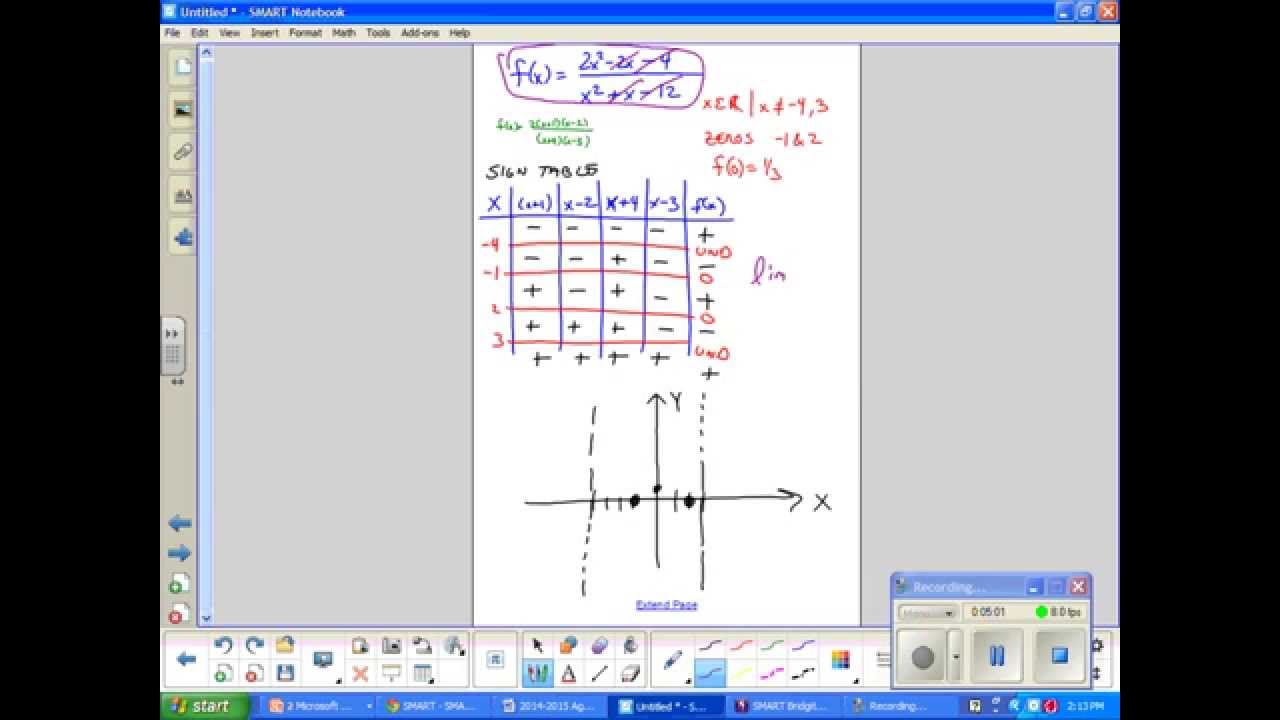 Untitled * - SMART Notebook
File Edit View Insert Format Math Tools Add-ons Help
f(x) = 2x² - 2x - 4
x² + x - 12
x ∈ R | x ≠ -4, 3
f(x) = 2(x+1)(x-2)
(x+4)(x-3)
zeros -1 & 2
f(0) = 1/3
SIGN TABLE
X (x+1) x-2 x+4 x-3 f(x)
- - - - +
-4 UND
- - + - -
-1 0
+ - + - +
2 0
+ + + - -
3 UND
+ + + + +
lim
Y
X
Extend Page
Recording...
Menu
0:05:01 8.0 fps
start
2 Microsoft ...
SMART - SMA...
2014-2015 Ag...
Untitled * - S...
SMART Bridgit...
Recording...
2:13 PM